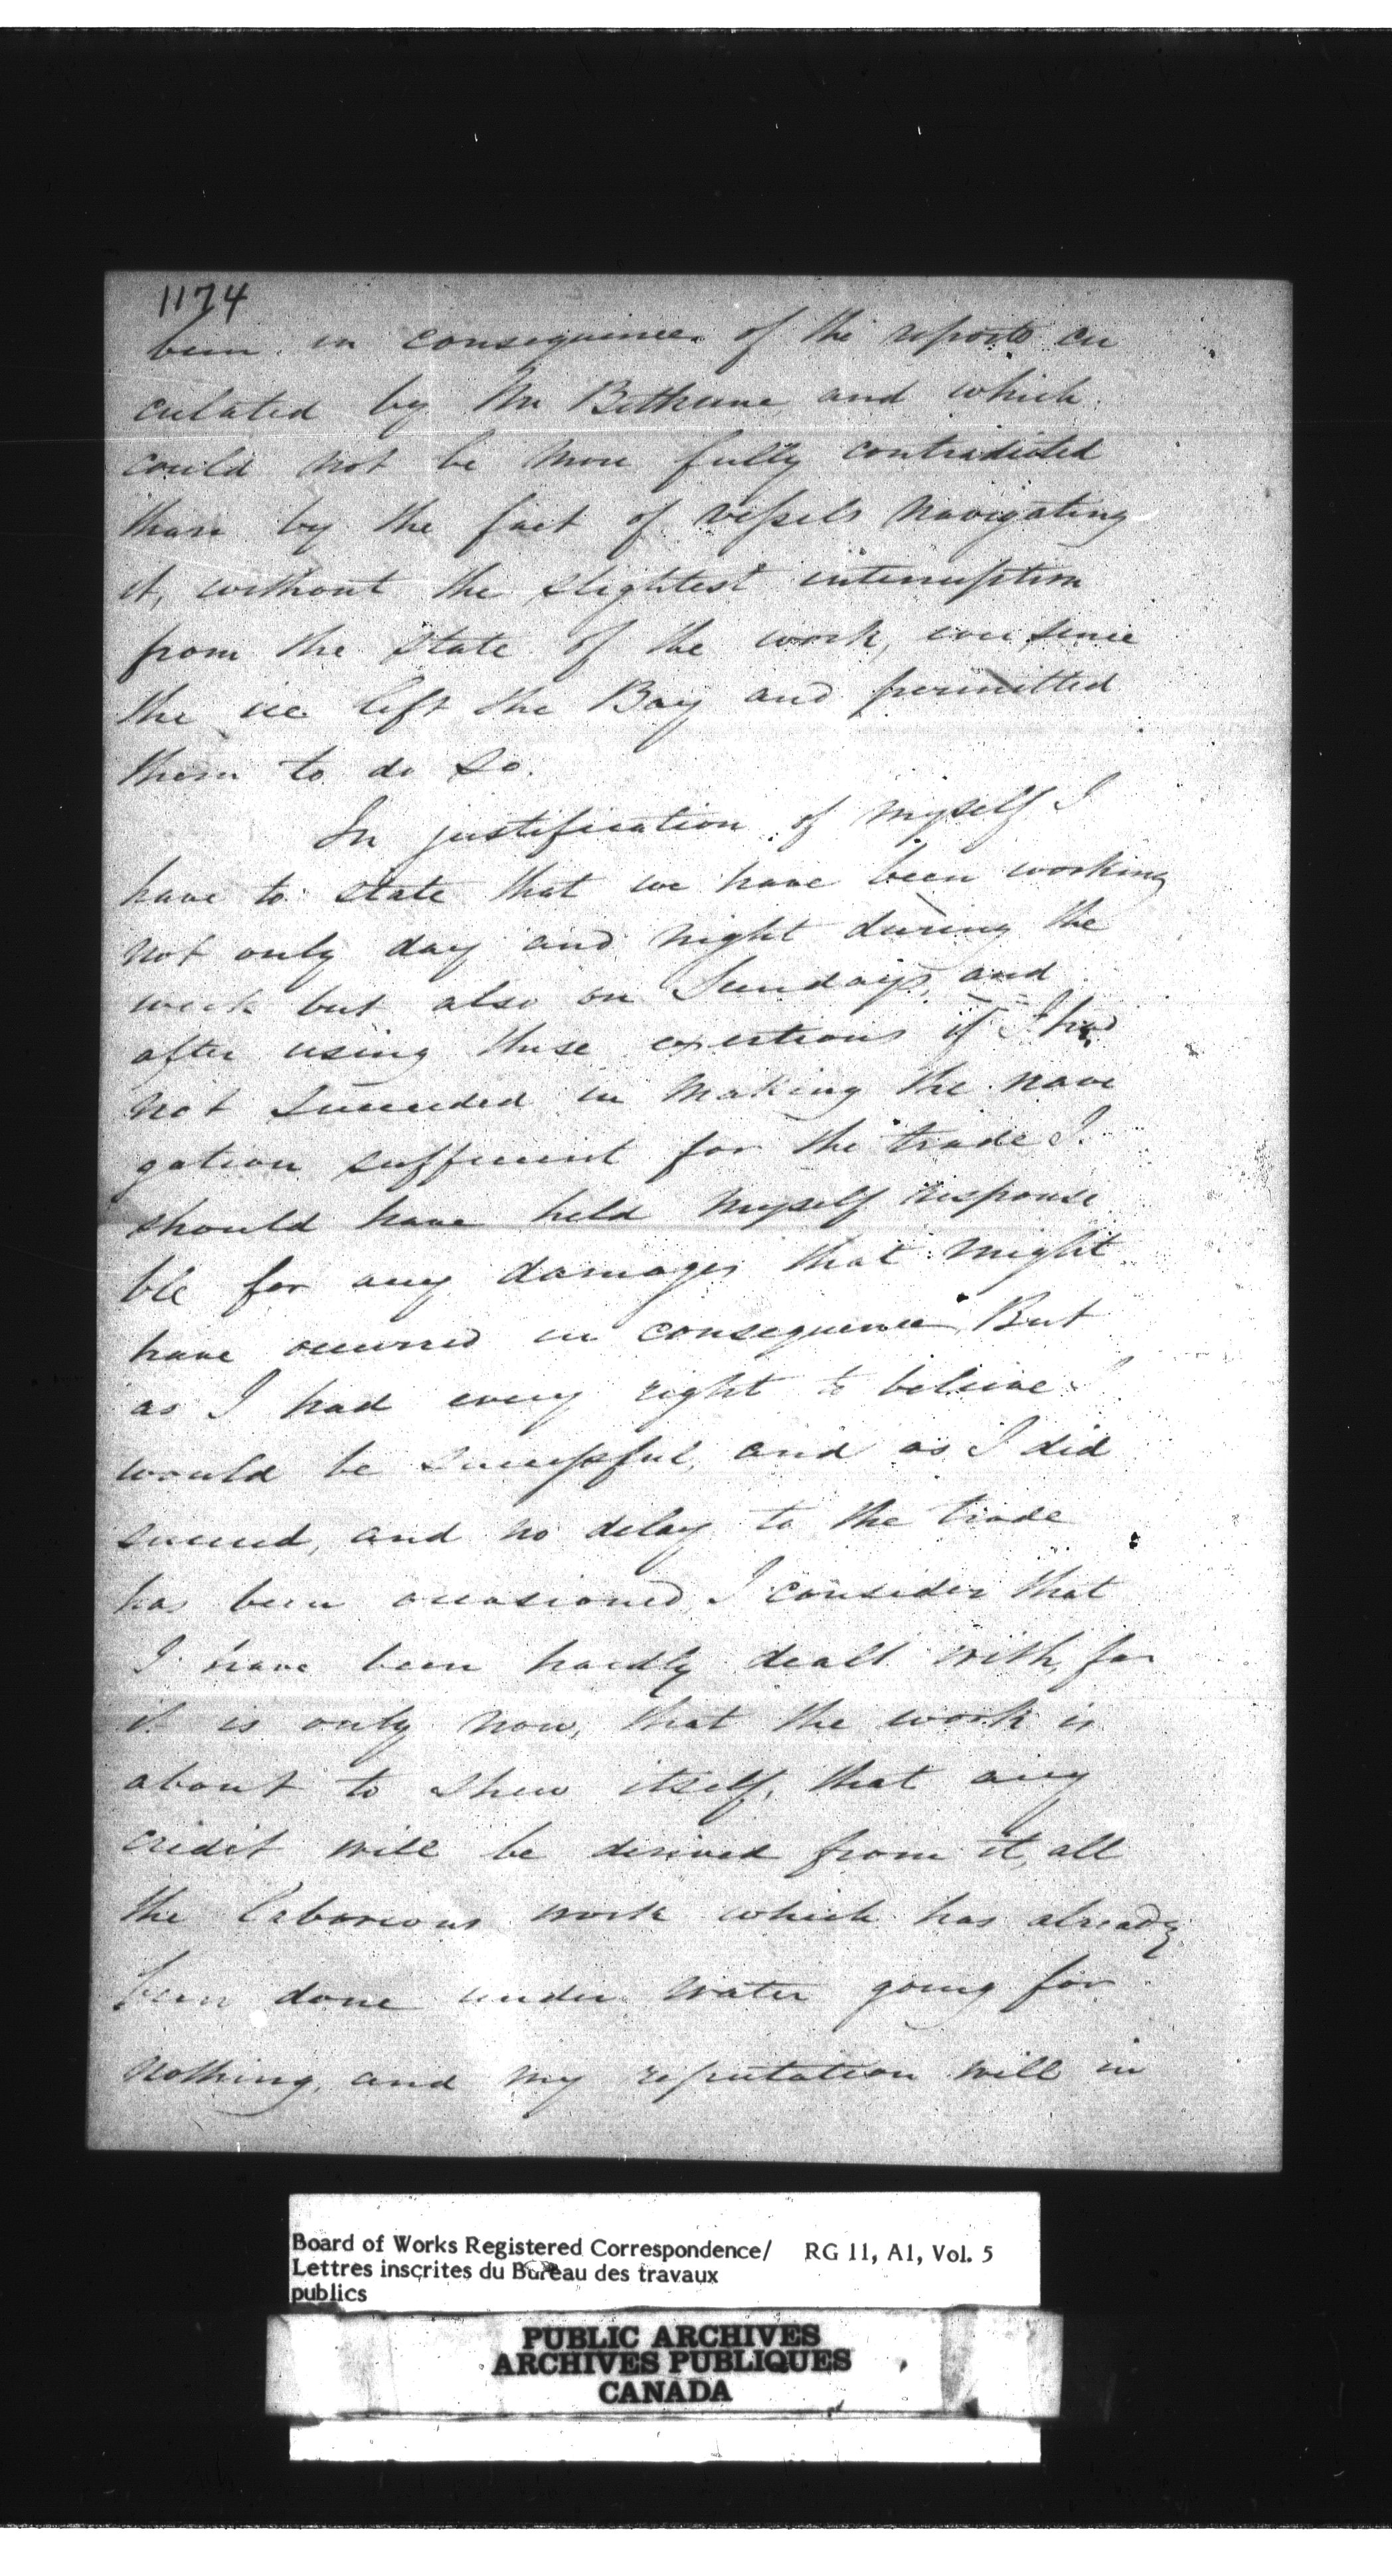 1174
been in consequence of the reports cir
culated by Mr Bethune and which
could not be more fully contradicted
than by the fact of vessels navigating
it, without the slightest interruption
from the state of the work, ever since
the ice left the Bay and permitted
them to do so.
In justification of myself I
have to state that we have been working
not only day and night during the
week but also on Sundays, and
after using these exertions if I had
not succeeded in making the navi
gation sufficient for the trade I
should have held myself responsi
ble for any damages that might
have occurred in consequence, But
as I had every right to believe I
would be successful, and as I did
succeed, and no delay to the trade
has been occasioned, I consider that
I have been hardly dealt with, for
it is only now, that the work is
about to shew itself, that any
credit will be derived from it, all
the laborious work which has already
been done under water going for
nothing, and my reputation will in
Board of Works Registered Correspondence/ RG 11, A1, Vol. 5
Lettres inscrites du Bureau des travaux
publics
PUBLIC ARCHIVES
ARCHIVES PUBLIQUES
CANADA